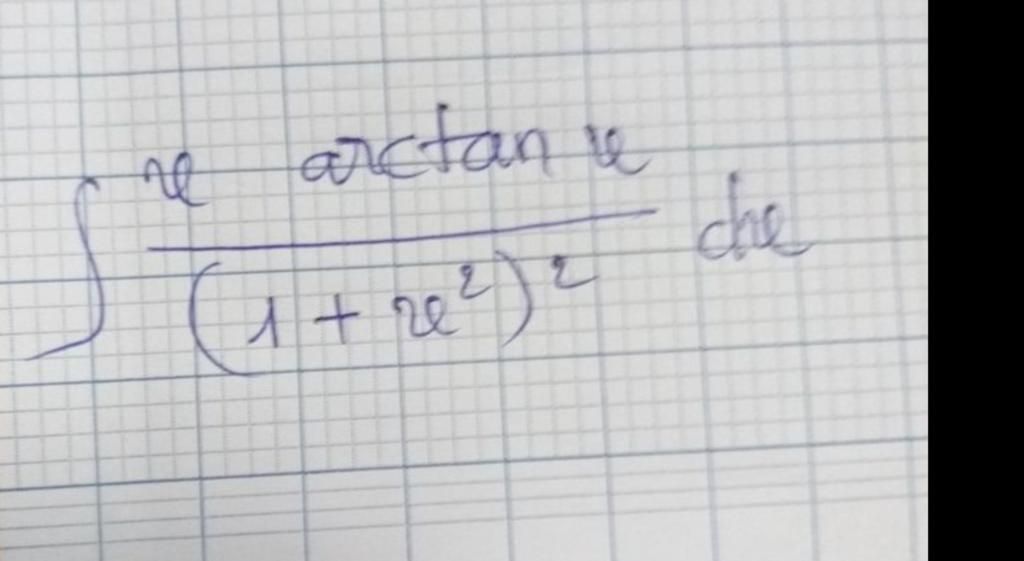 ∫ x arctan x / (1 + x²)² dx